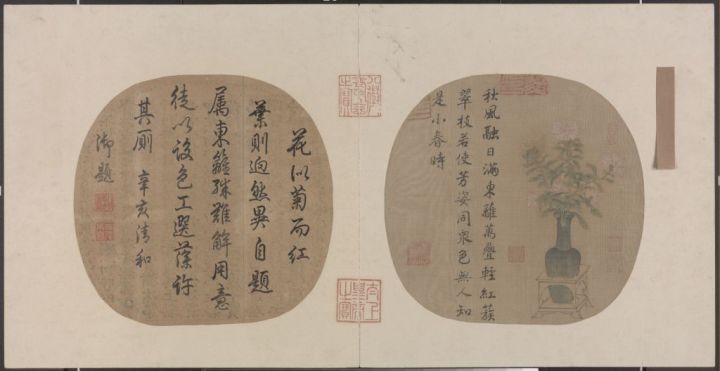 秋風融日滿東籬萬疊輕紅簇
翠枝若使芳姿同衆色無人知
是小春時
八徵耄念之寶
太上皇帝之寶
花似菊而紅
葉則迥然異自題
屬東籬殊難解用意
徒以設色工選藻許
其廁 辛亥清和
御題